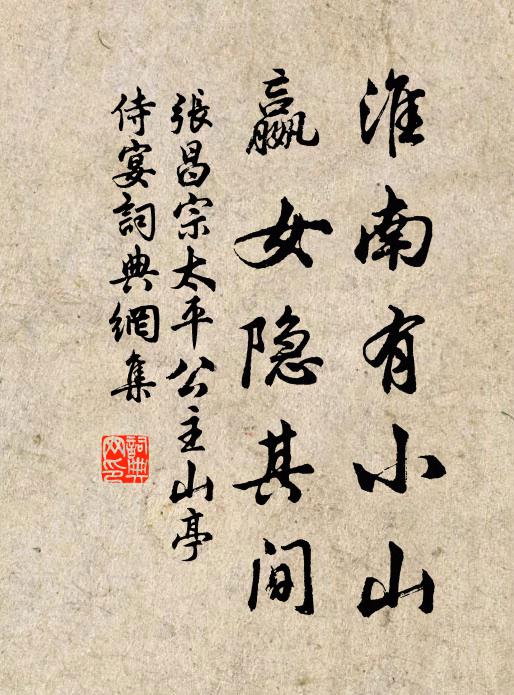 淮南有小山
嬴女隐其间
張昌宗太平公主山亭
侍宴詞典網集
詞典网印